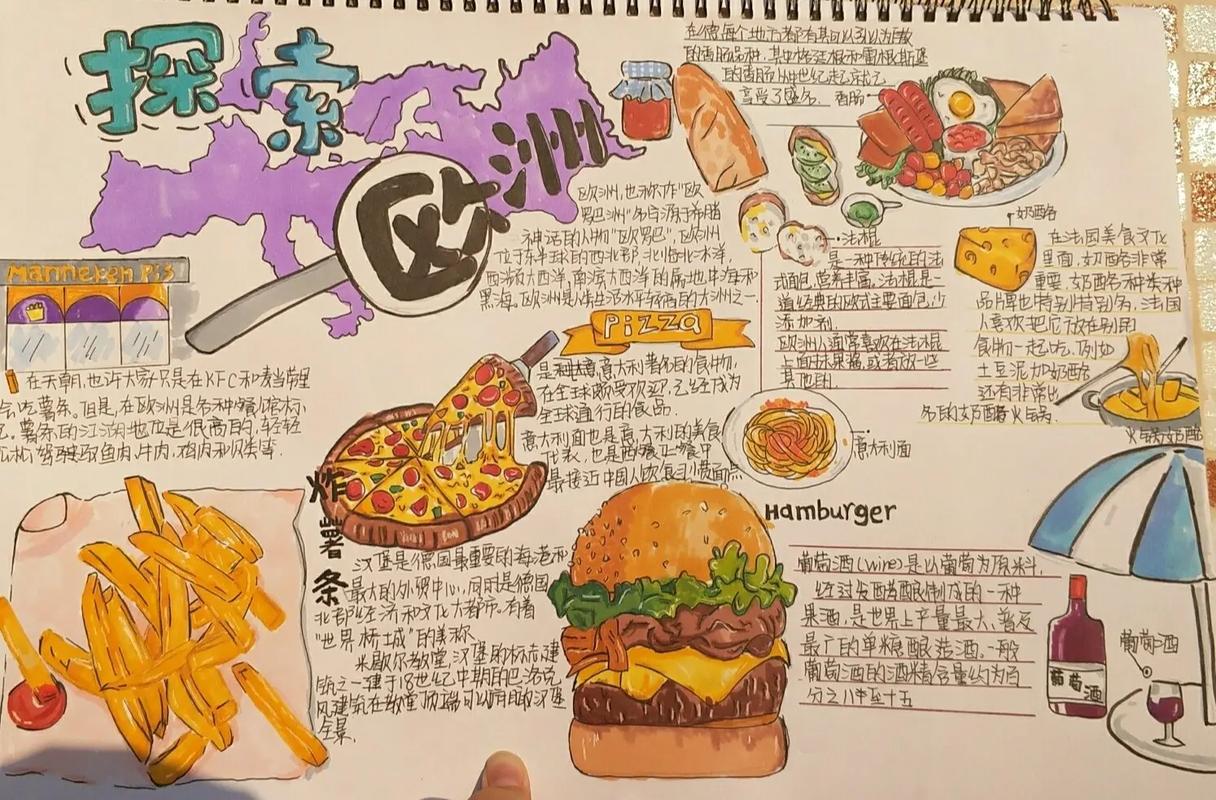 探索
欧洲
在德每个地方都有其引以为傲
的香肠品种,其中
的香肠从中世纪起
享受了盛名. 香肠
欧洲,也称作"欧
罗巴洲"名字源于希腊
神话的人物"欧罗巴",欧洲
位于东半球的西北部,北临北冰洋,
西濒大西洋,南濒大西洋的属地中海和
黑海.欧洲是人生生活水平较高的大洲之一.
法棍
是一种传统的法
式面包,营养丰富.法棍是
最经典的欧式主要面包,少
添加剂.
欧洲人通常喜欢在法棍
上面抹果酱,或者放一些
其他的.
奶酪
在法国美食文化
里面,奶酪非常
重要,奶酪各种类种
品牌也特别特别多,法国
人喜欢把它放在别的
食物一起吃,例如
土豆泥加奶酪
还有非常出
名的奶酪火锅.
火锅奶酪
Manneken Pis
在天朝,也许大家只是在KFC和麦当劳里
吃薯条。但是,在欧洲是各种餐馆标
。薯条的江湖地位是很高的,轻轻
松松驾驭 鱼肉,牛肉,鸡肉和贝类等.
Pizza
是种 意大利著名的食物,
在全球颇受欢迎,已经成为
全球通行的食品.
意大利面也是意大利的美食
代表,也是西餐正餐中
最接近中国人饮食习惯面点
意大利面
炸薯条
汉堡是德国最重要的海港和
最大的外贸中心,同时是德国
北部经济和文化大都市.有着
"世界桥城"的美称.
米歇尔教堂,汉堡的标志建
筑之一建于18世纪中期的巴洛克
风建筑在教堂顶端可以俯瞰汉堡
全景.
Hamburger
葡萄酒(wine)是以葡萄为原料,
经过发酵酿制成的一种
果酒,是世界上产量最大、普及
最广的单糖酿造酒.一般
葡萄酒的酒精含量约为百
分之八至十五
葡萄酒
葡萄酒